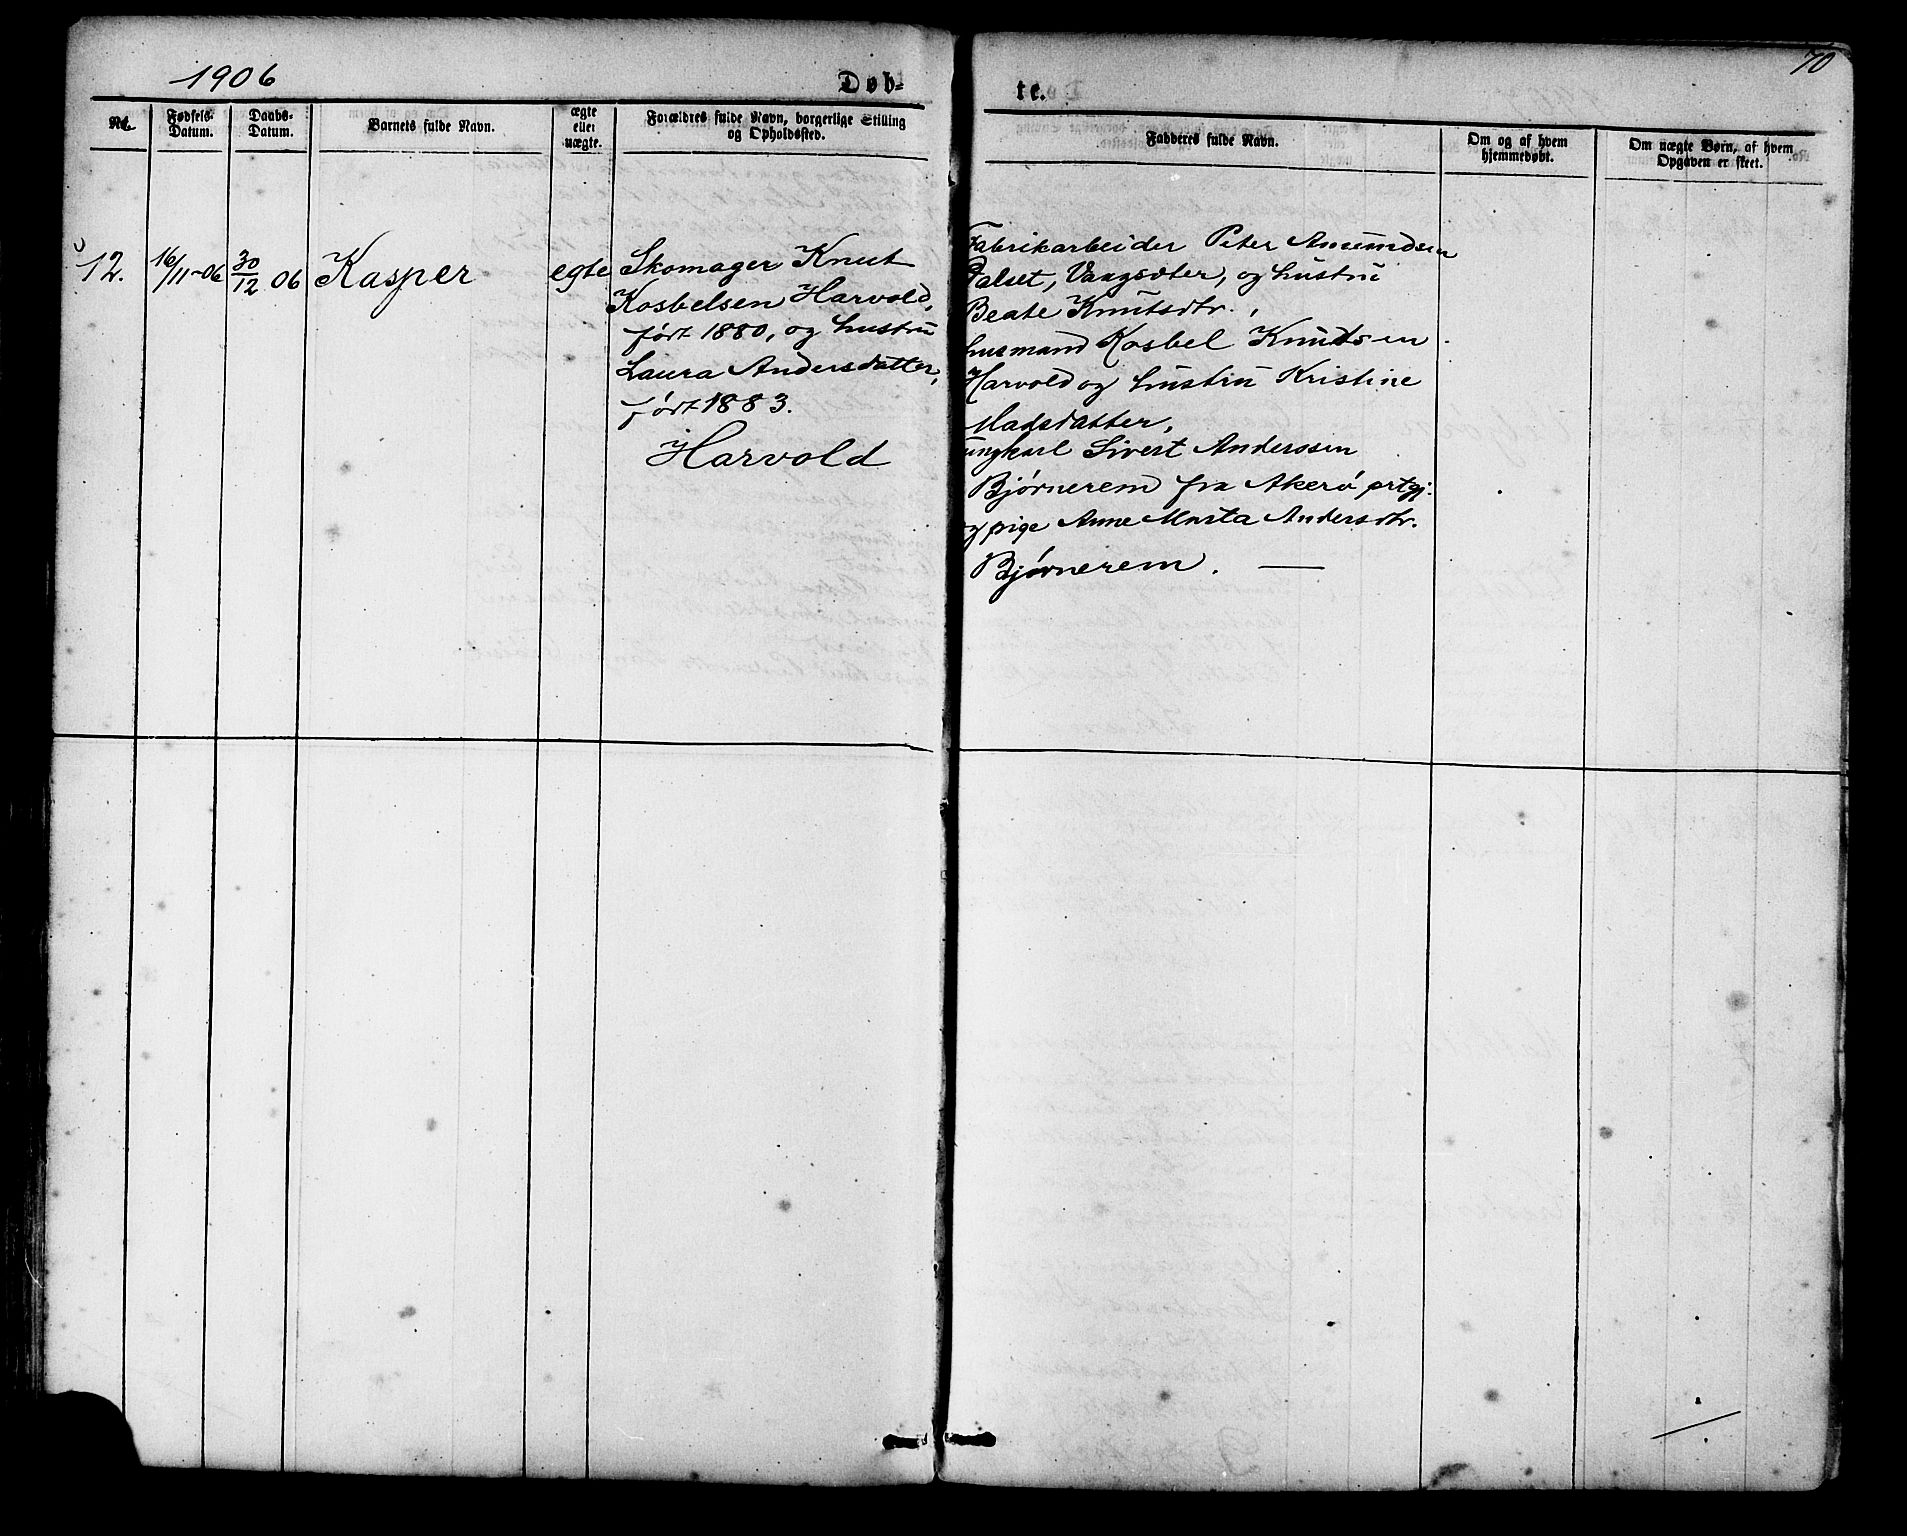 1906
Døb-
te.
70
No.
Fødsels-
Datum.
Daabs-
Datum.
Barnets fulde Navn.
ægte
eller
uægte.
Forældres fulde Navn, borgerlige Stilling
og Opholdssted.
Fadderes fulde Navn.
Om og af hvem
hjemmedøbt.
Om uægte Børn, af hvem
Opgaven er skeet.
12.
16/11-06
30/12 06
Kasper
egte
Skomager Knut
Kosbelsen Harvold,
født 1880, og hustru
Laura Andersdatter,
født 1883.
Harvold
Fabrikarbeider Peter Amundsen
Dalset, Vaagsæter, og hustru
Beate Knutsdtr.,
husmand Kosbel Knudsen
Harvold og hustru Kristine
Madsdatter,
ungkarl Sivert Anderssen
Bjørnerem fra Akerø prtgj.
og pige Anne Marta Andersdtr.
Bjørnerem. —